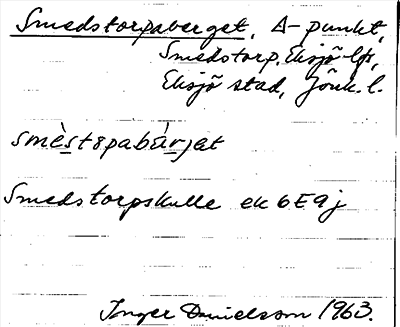 Smedstorpaberget, Δ-punkt,
Smedstorp, Eksjö lfs,
Eksjö stad, Jönk. l.
smès̲tɞpabár̲jət
Smedstorpskulle ek 6E9j
Inger Danielsson 1963.